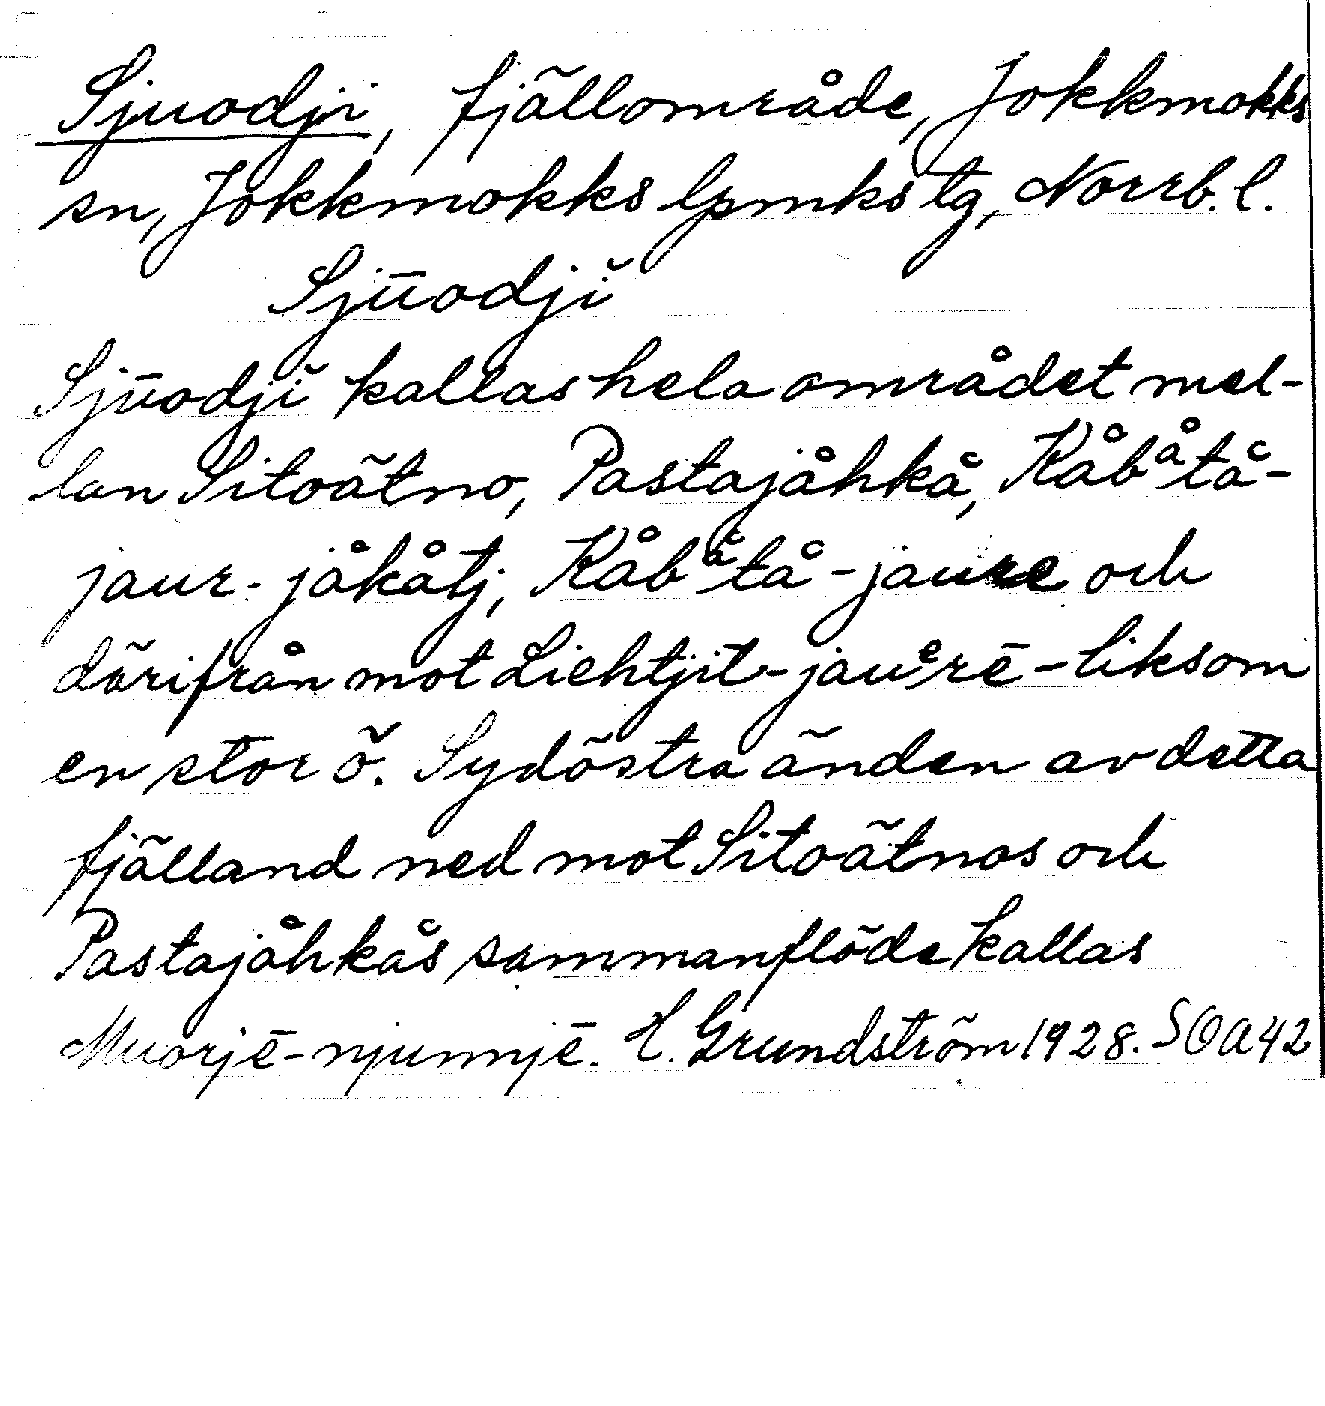 Sjuodji, fjällområde, Jokkmokks
sn, Jokkmokks lpmks tg, Norrb. l.
Sjūodjĭ
Sjūodjĭ kallas hela området mel-
lan Sitoätno, Pastajåhkå, Kåbåtå-
jaur-jåkåtj, Kåbåtå-jaure och
därifrån mot Liehtjit-jauᵉrē - liksom
en stor ö. Sydöstra änden av detta
fjälland ned mot Sitoätnos och
Pastajåhkås sammanflöde kallas
Muorjē-njunnjē. H. Grundström 1928. SOA42